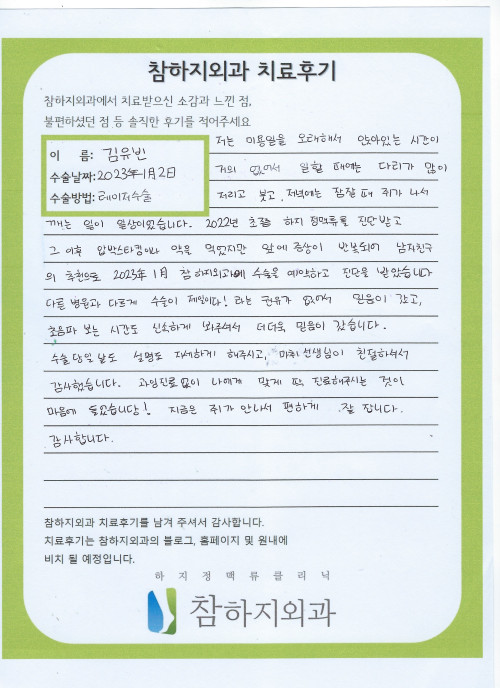 참하지외과 치료후기
참하지외과에서 치료받으신 소감과 느낀 점,
불편하셨던 점 등 솔직한 후기를 적어주세요
이 름: 김유빈
수술날짜: 2023年 1月 2日
수술방법: 레이저수술
저는 미용일을 오래해서 앉아있는 시간이
거의 없어서 일할 때에는 다리가 많이
저리고 붓고, 저녁에는 잠잘 때 쥐가 나서
깨는 일이 일상이었습니다. 2022년 초쯤 하지정맥류를 진단받고
그 이후 압박스타킹이나 약을 먹었지만 앞에 증상이 반복되어 남자친구
의 추천으로 2023年 1月 참하지외과에 수술을 예약하고 진단을 받았습니다
다른 병원과 다르게 수술이 제일이다! 라는 권유가 없어서 믿음이 갔고,
초음파 보는 시간도 신중하게 봐주셔서 더더욱 믿음이 갔습니다.
수술 당일 날도 설명도 자세하게 해주시고, 마취선생님이 친절하셔서
감사했습니다. 과잉진료 없이 나에게 맞게 진료해주시는 것이
마음에 들었습니다! 지금은 쥐가 안나서 편하게 잘 잡니다.
감사합니다.
참하지외과 치료후기를 남겨 주셔서 감사합니다.
치료후기는 참하지외과의 블로그, 홈페이지 및 원내에
비치 될 예정입니다.
하지정맥류클리닉
참하지외과